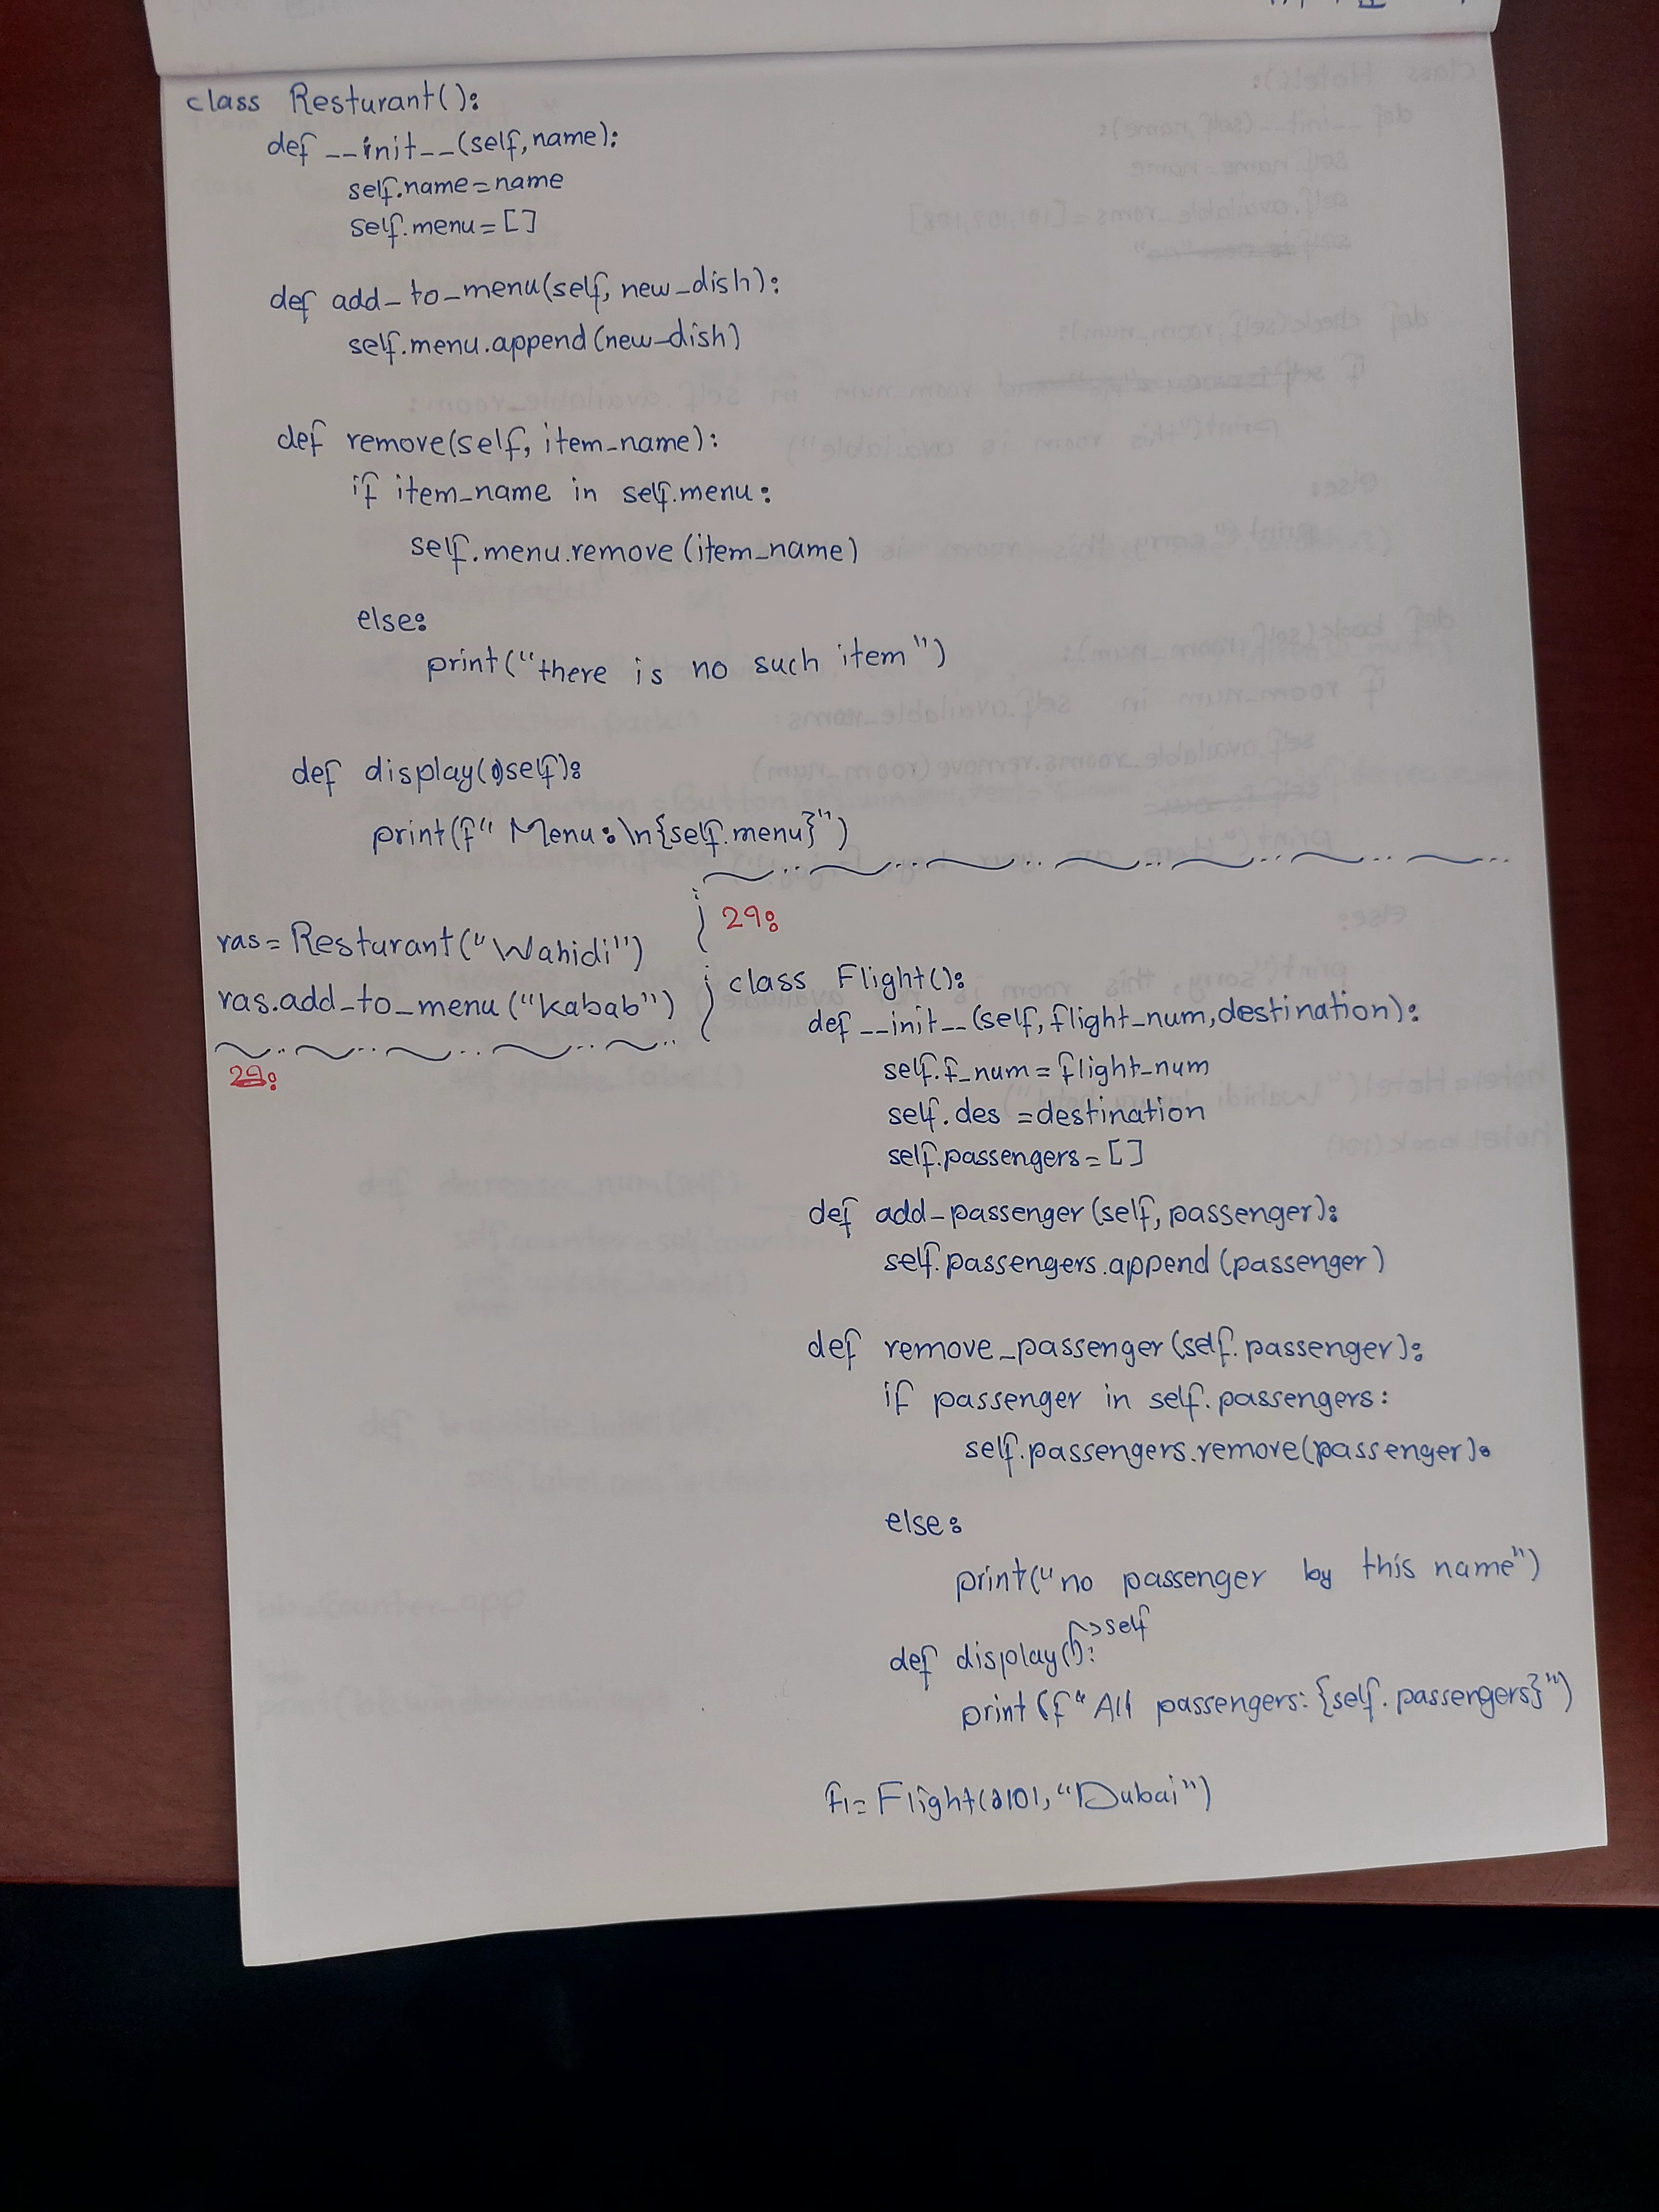 class Resturant():
def __init__(self,name):
self.name=name
self.menu=[]
def add_to_menu(self, new_dish):
self.menu.append(new_dish)
def remove(self, item_name):
if item_name in self.menu:
self.menu.remove(item_name)
else:
print("there is no such item")
def display(self):
print(f" Menu:\n{self.menu}")
ras=Resturant("Wahidi")
ras.add_to_menu("kabab")
29:
29:
class Flight():
def __init__(self,flight_num,destination):
self.f_num=flight_num
self.des=destination
self.passengers=[]
def add_passenger(self,passenger):
self.passengers.append(passenger)
def remove_passenger(self.passenger):
if passenger in self.passengers:
self.passengers.remove(passenger):
else:
print("no passenger by this name")
self
def display():
print(f"All passengers:{self.passengers}")
f1=Flight( "Dubai")